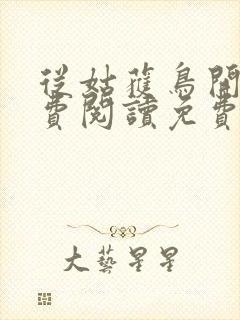 從姑蘿鳥開
費閱讀免費
大藝星星